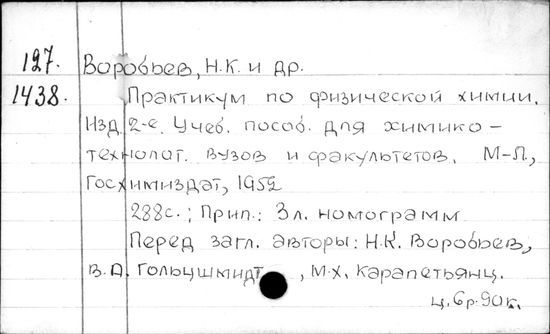 127. Воробьев, Н.К. и др.
1438. Практикум по физической химии.
Изд. 2-е. Учеб. пособ. для химико-
технолог. вузов и факультетов. М-Л.,
Госхимиздат, 1952
288с.; Прил.: 3л. номограмм
Перед загл. авторы: Н.К. Воробьев,
В.А. Гольцшмидт, М.Х. Карапетьянц.
ц. 6р.90к.